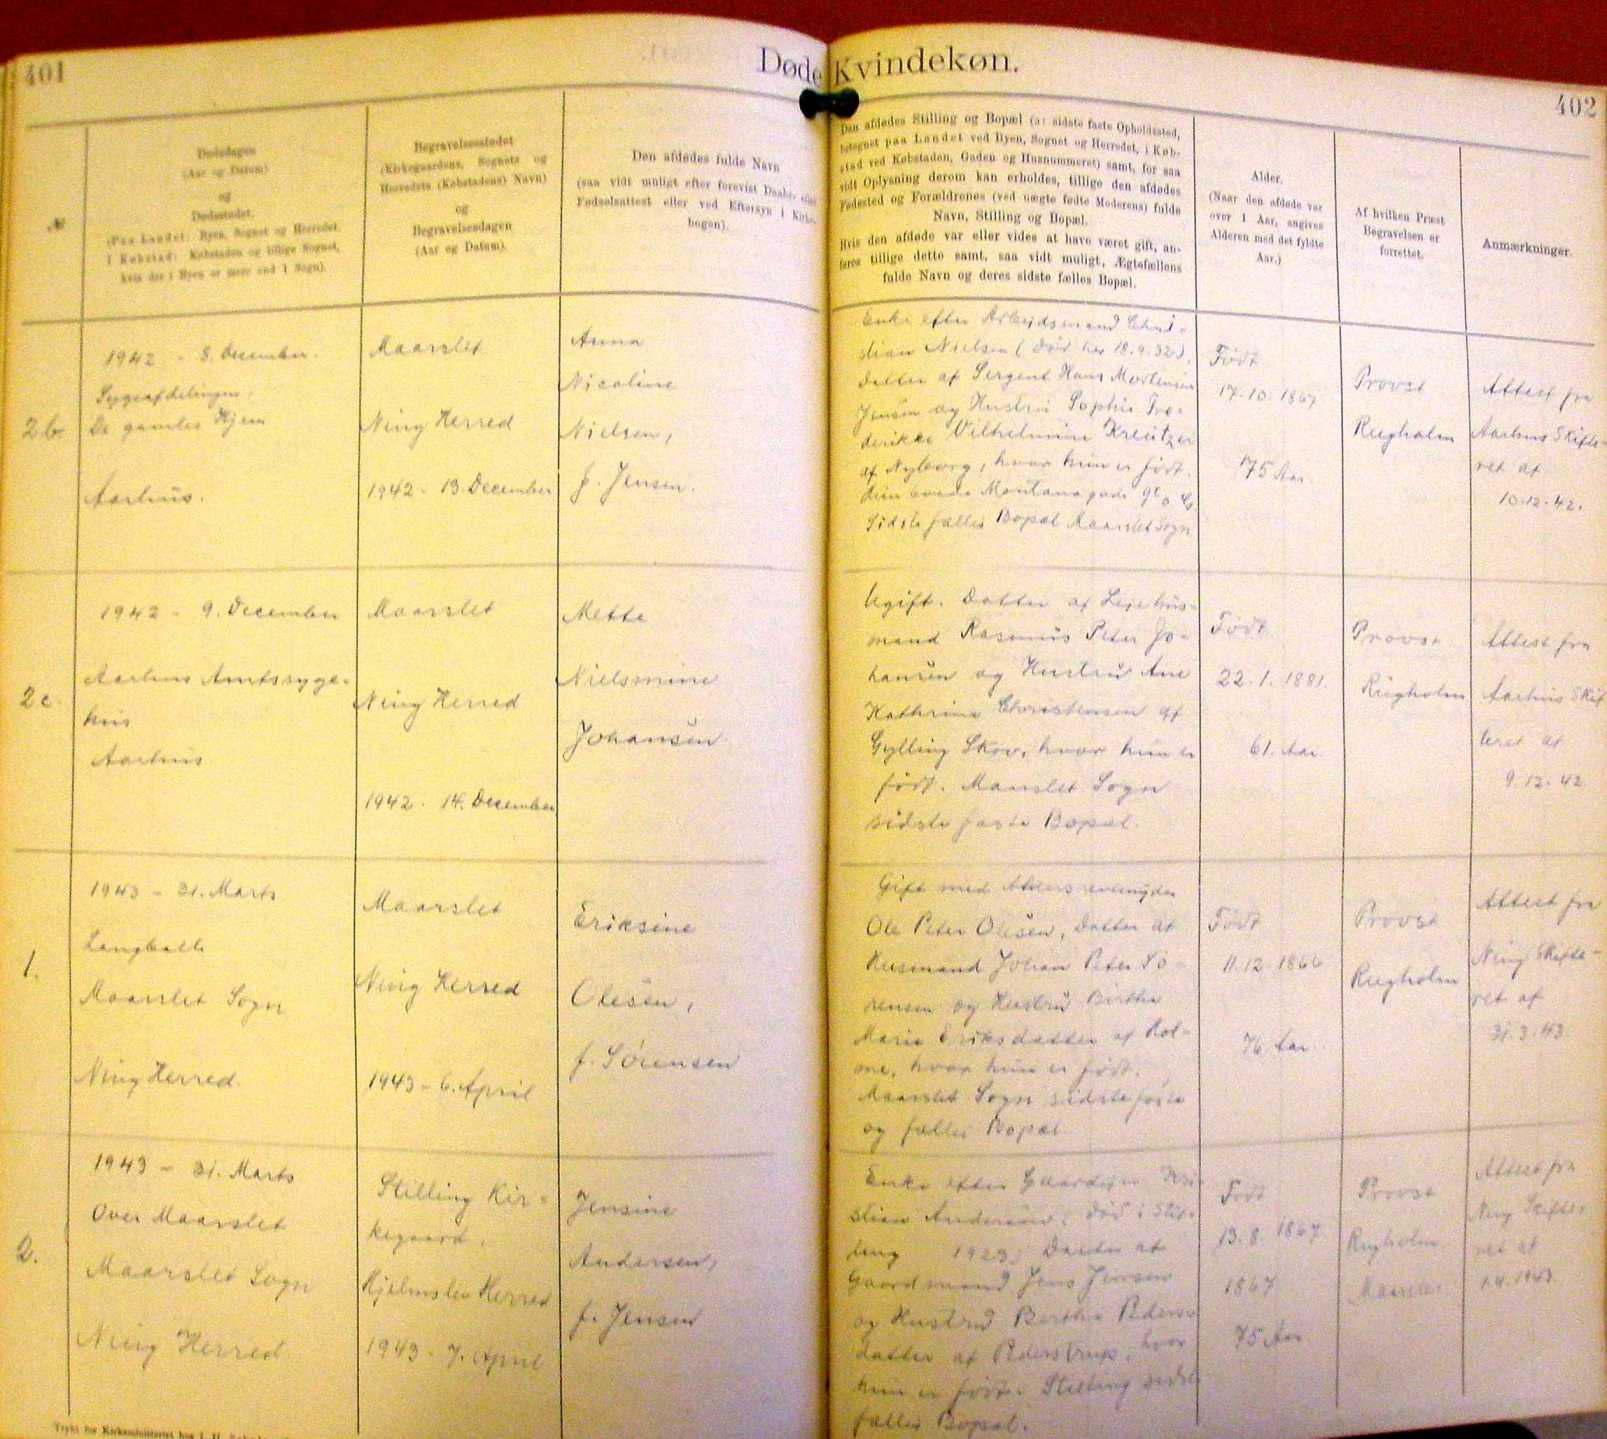 401
Døde Kvindekøn.
402
№
Dødsdagen
(Aar og Datum)
og
Dødsstedet.
(Paa Landet: Byen, Sognet og Herredet.
I Købstad: Købstaden og tillige Sognet,
hvis der i Byen er mere end 1 Sogn).
Begravelsesstedet
(Kirkegaardens, Sognets og
Herredets (Købstadens) Navn)
og
Begravelsesdagen
(Aar og Datum).
Den afdødes fulde Navn
(saa vidt muligt efter forevist Daabs- eller
Fødselsattest eller ved Eftersyn i Kirke-
bogen).
Den afdødes Stilling og Bopæl (ɔ: sidste faste Opholdssted,
betegnet paa Landet ved Byen, Sognet og Herredet, i Køb-
stad ved Købstaden, Gaden og Husnummeret) samt, for saa
vidt Oplysning derom kan erholdes, tillige den afdødes
Fødested og Forældrenes (ved uægte fødte Moderens) fulde
Navn, Stilling og Bopæl.
Hvis den afdøde var eller vides at have været gift, an-
føres tillige dette samt, saa vidt muligt, Ægtefællens
fulde Navn og deres sidste fælles Bopæl.
Alder.
(Naar den afdøde var
over 1 Aar, angives
Alderen med det fyldte
Aar.)
Af hvilken Præst
Begravelsen er
forrettet.
Anmærkninger.
2b.
1942 - 8. December.
Sygeafdelingen,
De gamles Hjem
Aarhus.
Maarslet
Ning Herred
1942 - 13. December
Anna
Nicoline
Nielsen,
f. Jensen.
Enke efter Arbejdsmand Chri-
stian Nielsen (død her 18.9.32),
Datter af Sergent Hans Mortensen
Jensen og Hustru Sophie Fre-
derikke Vilhelmine Kreutzer
af Nyborg, hvor hun er født.
Montanagade
Sidste fælles Bopæl Maarslet Sogn
Født
17.10.1867
75 Aar
Provst
Rugholm
Attest fra
Aarhus Skifte-
ret af
10-12-42.
2c
1942 - 9. December
Aarhus Amtssyge-
hus
Aarhus
Maarslet
Ning Herred
1942 - 14. December
Mette
Nielsmine
Johansen
Ugift. Datter af Lejehus-
mand Rasmus Peter Jo-
hansen og Hustru Ane
Kathrine Christensen af
Gylling Skov, hvor hun er
født. Maarslet Sogn
sidste faste Bopæl.
Født
22.1.1881.
61. Aar
Provst
Rugholm
Attest fra
Aarhus Skif
teret af
9.12.42
1.
1943 - 31. Marts
Langballe
Maarslet Sogn
Ning Herred.
Maarslet
Ning Herred
1943 - 6. April
Eriksine
Olesen,
f. Sørensen
Gift med Aldersrentenyder
Ole Peter Olesen, Datter af
Husmand Johan Peter Sø-
rensen og Hustru Birthe
Marie Eriksdatter af Hol-
me, hvor hun er født.
Maarslet Sogn sidste faste
og fælles Bopæl
Født
11.12.1866
76. Aar.
Provst
Rugholm
Attest fra
Ning Skifte-
ret af
31.3.43.
2.
1943 - 31. Marts
Over Maarslet
Maarslet Sogn
Ning Herred
Stilling Kir-
kegaard,
Hjelmslev Herred
1943 - 7. April
Jensine
Andersen,
f. Jensen
Enke efter Gaardejer Kri-
stian Andersen (død i Stil-
ling 1923) Datter af
Gaardmand Jens Jensen
og Hustru Berthe Peders-
datter af Pederstrup, hvor
hun er født. Stilling sidste
fælles Bopæl.
Født
13.8.1867.
1867
75 Aar
Provst
Rugholm
Maarslet
Attest fra
Ning Skifte-
ret af
1.4.1943.
Trykt for Kirkeministeriet hos